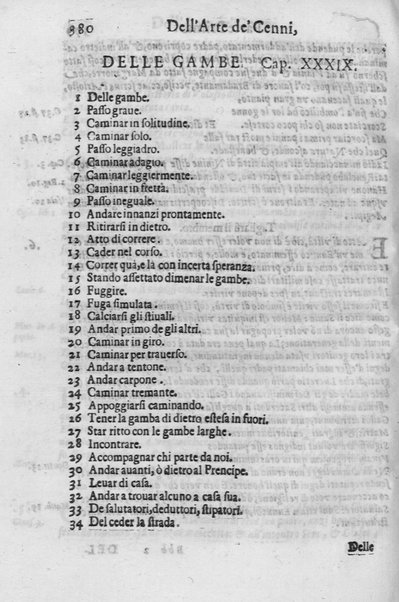 380 Dell'Arte de' Cenni,
DELLE GAMBE. Cap. XXXIX.
1 Delle gambe.
2 Passo graue.
3 Caminar in solitudine.
4 Caminar solo.
5 Passo leggiadro.
6 Caminar adagio.
7 Caminar leggiermente.
8 Caminar in fretta.
9 Passo ineguale.
10 Andare innanzi prontamente.
11 Ritirarsi in dietro.
12 Atto di correre.
13 Cader nel corso.
14 Correr quà, e là con incerta speranza.
15 Stando assettato dimenar le gambe.
16 Fuggire.
17 Fuga simulata.
18 Calciarsi gli stiuali.
19 Andar primo de gli altri.
20 Caminar in giro.
21 Caminar per trauerso.
22 Andar a tentone.
23 Andar carpone.
24 Caminar tremante.
25 Appoggiarsi caminando.
26 Tener la gamba di dietro estesa in fuori.
27 Star ritto con le gambe larghe.
28 Incontrare.
29 Accompagnar chi parte da noi.
30 Andar auanti, ò dietro al Prencipe.
31 Leuar di casa.
32 Andar a trouar alcuno a casa sua.
33 De salutatori, deduttori, stipatori.
34 Del ceder la strada.
Delle